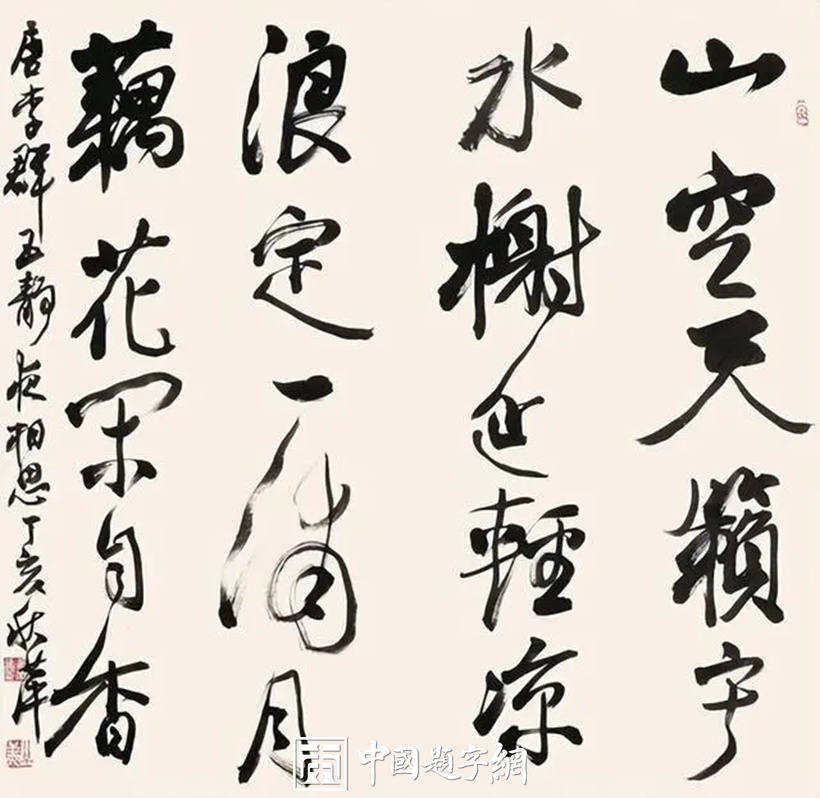 山空天籟宁
水榭延輕凉
浪定一浦月
藕花闲自香
唐李群玉靜夜相思丁亥秋
中國題字網